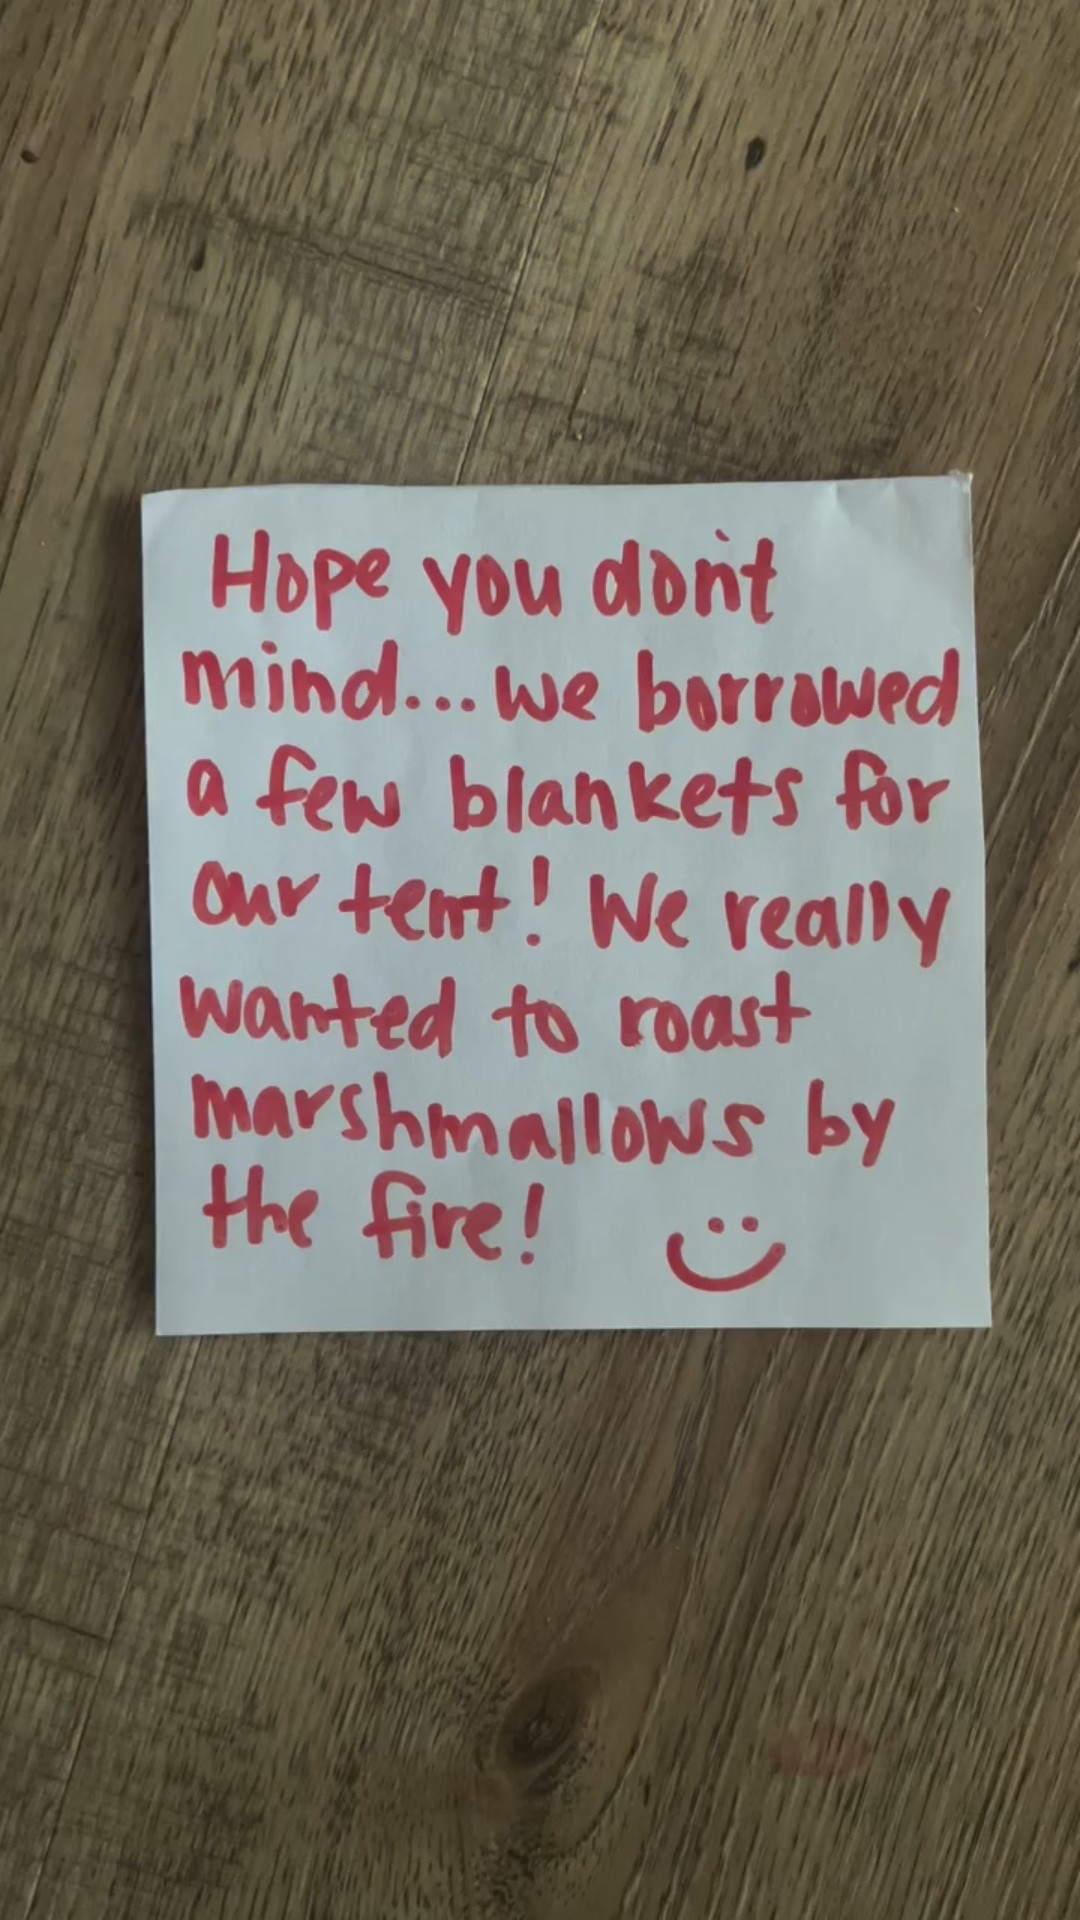 Hope you don't
mind... we borrowed
a few blankets for
our tent! We really
wanted to roast
marshmallows by
the fire!